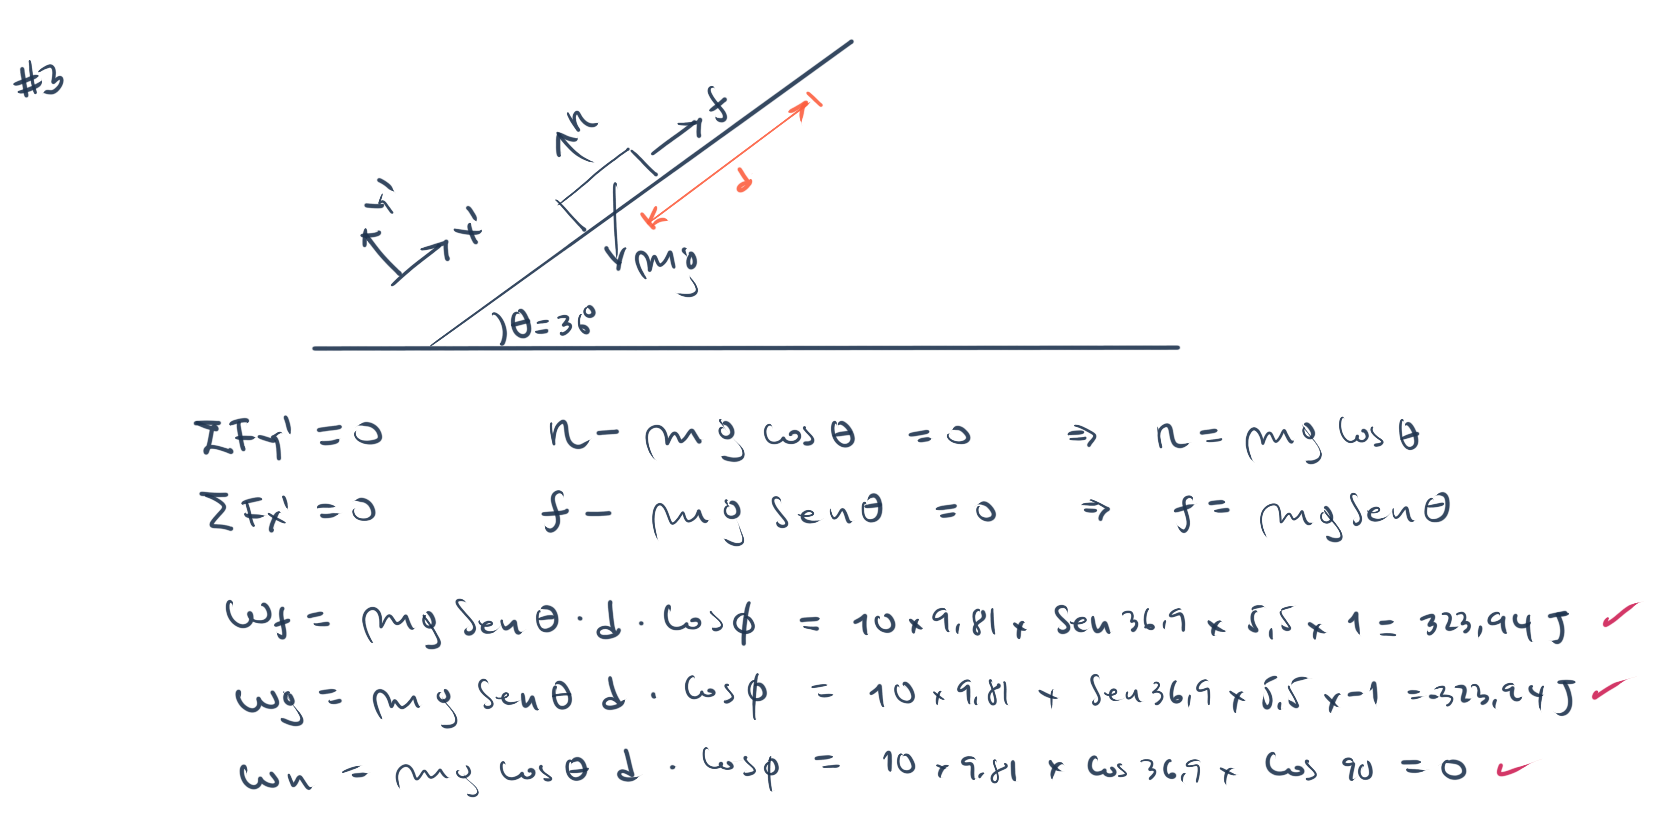 #3
n
f
y'
x'
d
mg
θ=36°
ΣFy' = 0 n - mg cos θ = 0 ⇒ n = mg cos θ
ΣFx' = 0 f - mg Sen θ = 0 ⇒ f = mg Sen θ
Wf = mg Sen θ · d · Cos φ = 10 × 9,81 × Sen 36,9 × 5,5 × 1 = 323,94 J ✓
Wg = mg Sen θ d · Cos φ = 10 × 9,81 × Sen 36,9 × 5,5 × -1 = -323,94 J ✓
Wn = mg Cos θ d · Cos φ = 10 × 9.81 × Cos 36,9 × Cos 90 = 0 ✓